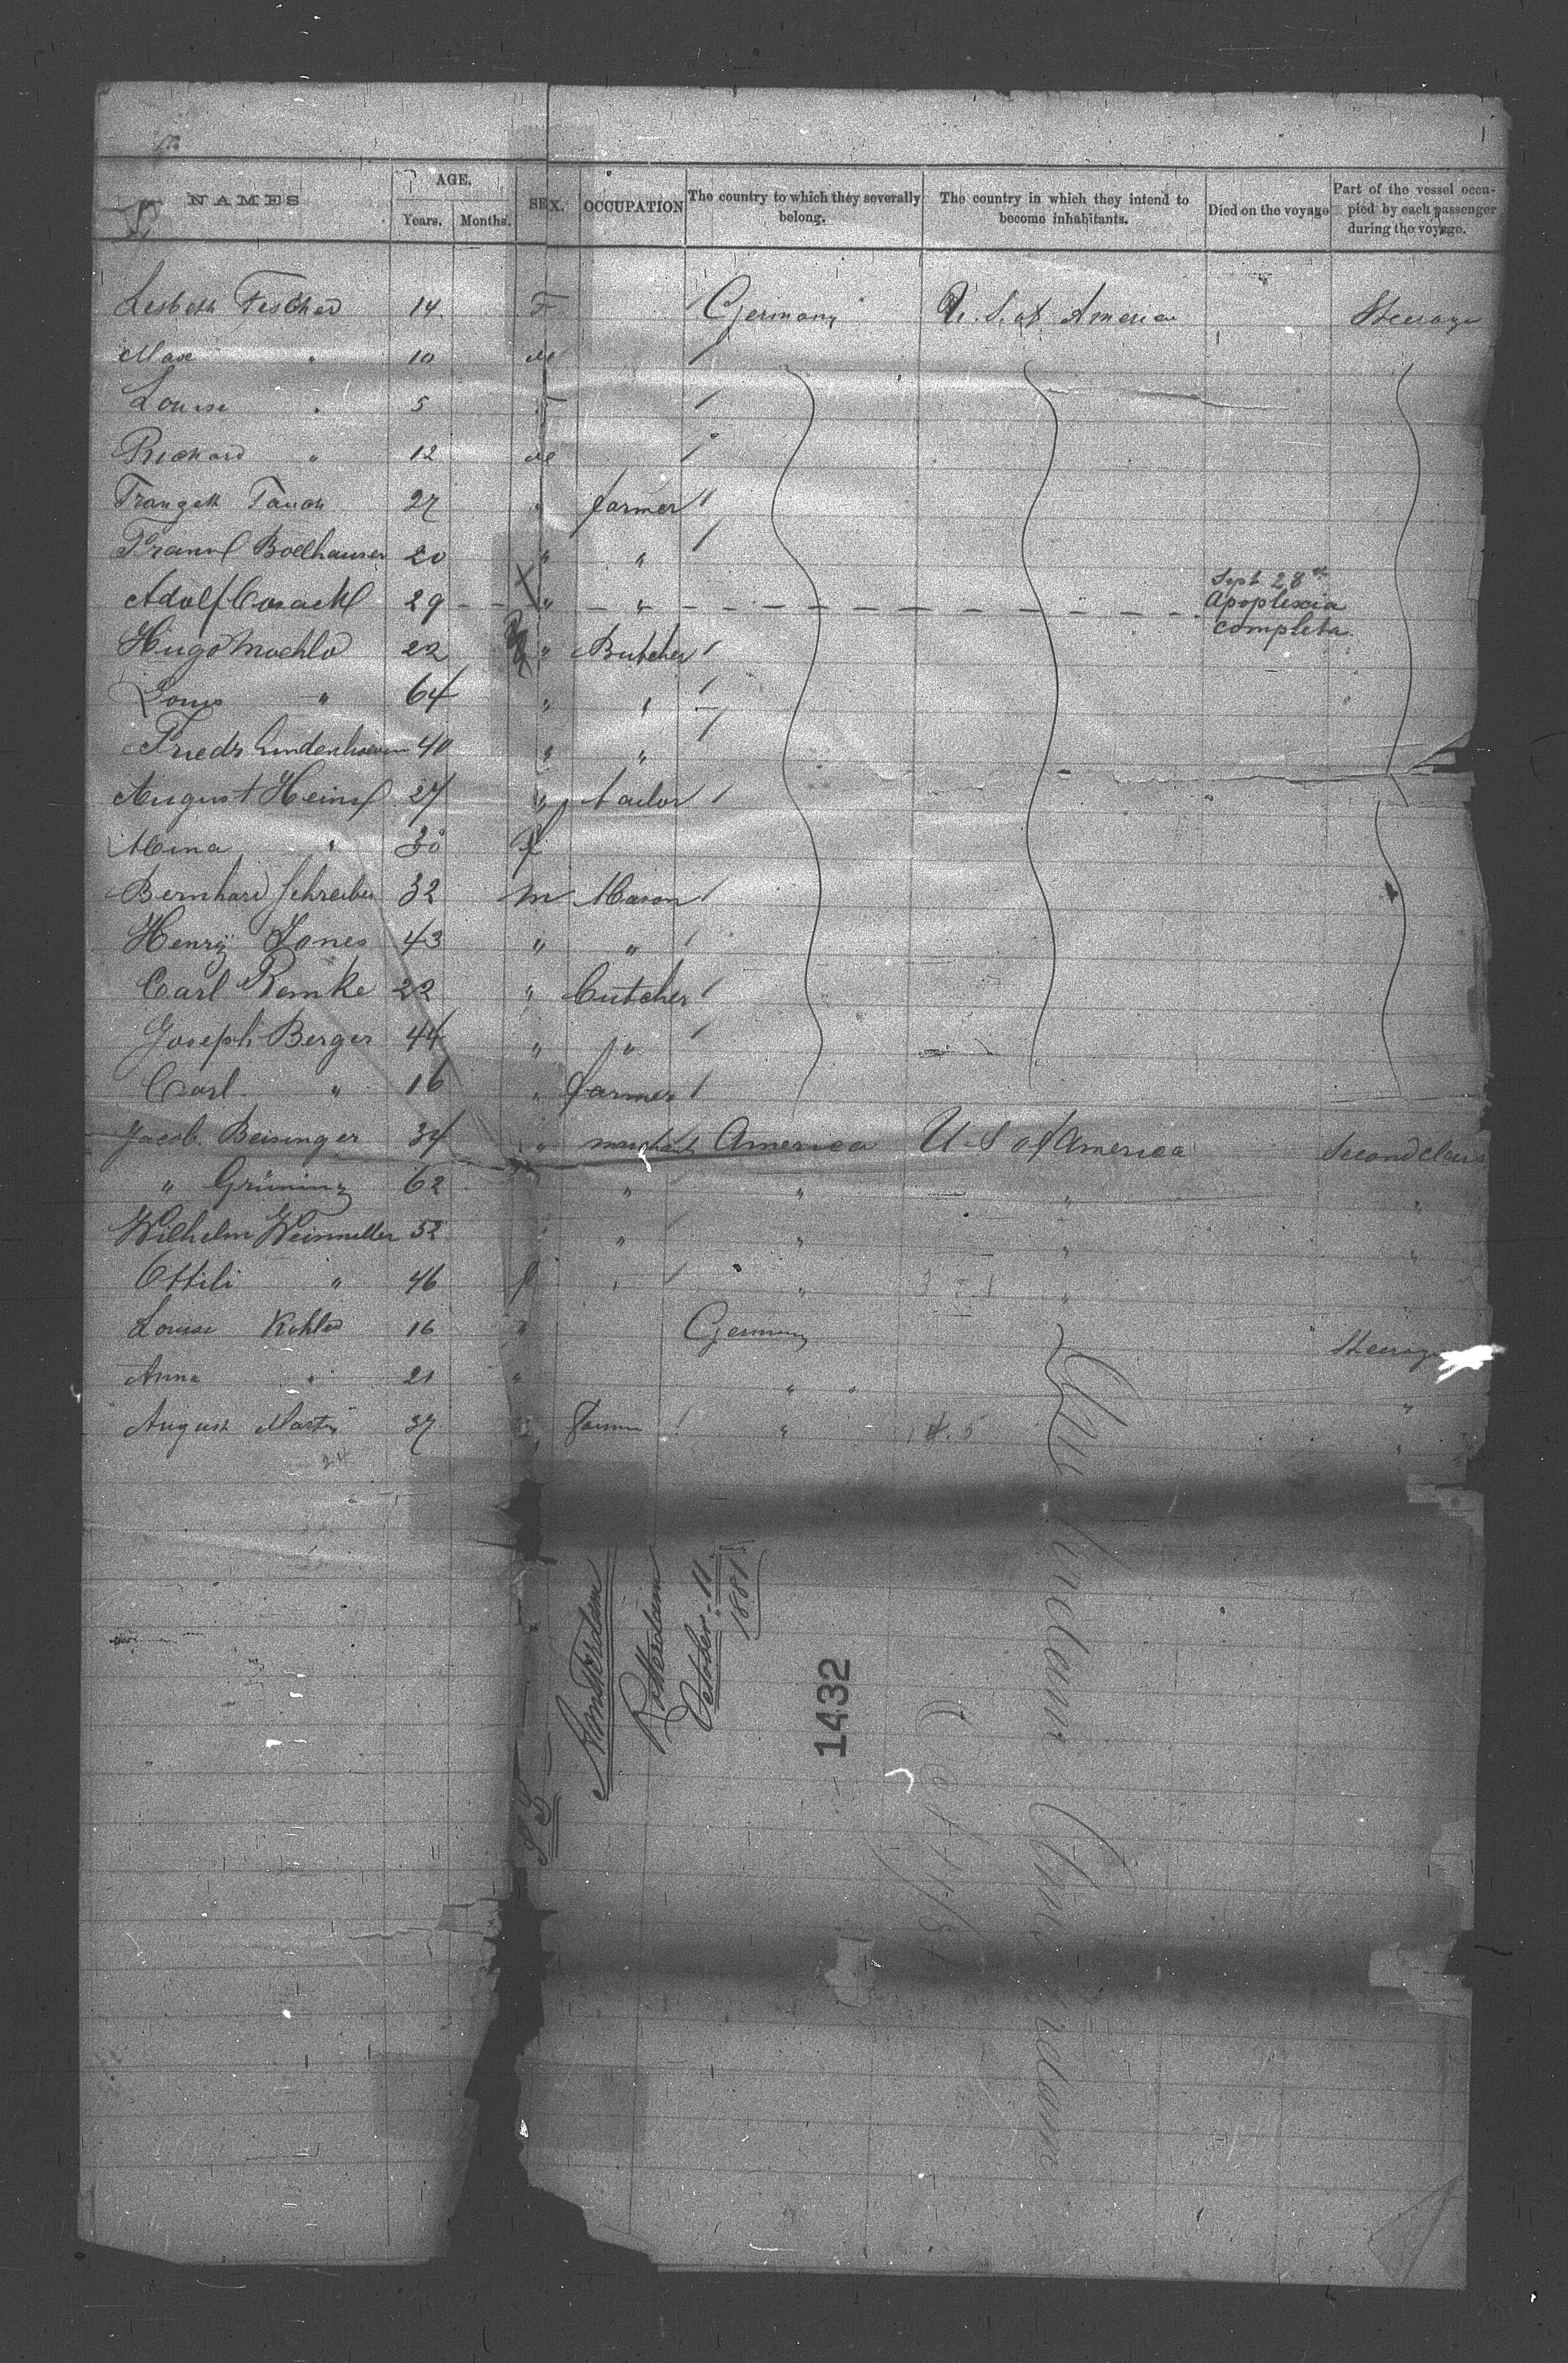 NAMES AGE. Years. Months. SEX. OCCUPATION The country to which they severally belong. The country in which they intend to become inhabitants. Died on the voyage Part of the vessel occupied by each passenger during the voyage.
Lisbeth Fischer 14 F Germany U. S. of America Steerage
Max " 10 M
Louise " 5 F
Richard " 12 M
27 " farmer
Boelhauser 20 " "
Adolf Cosack 29 " " Sept 28th Apoplexia completa
Hugo 22 " Butcher
Louis " 64 " "
Friedr 40 " "
August Heins 27 " tailor
Mina " 30 f
Bernhard Schreiber 32 m Mason
Henry Jones 43 " "
Carl Remke 22 " butcher
Joseph Berger 44 " "
Carl " 16 " farmer
Jacob Beisinger 34 " merchant America U S of America Second class
" Grüning 62 " " " "
Wilhelm Weinmüller 52 " " " "
Ottili " 46 f " " "
Louise Kohler 16 " Germany Steerage
Anna " 21 " " "
August Martin 37 Farmer " "
24
SS Amsterdam
Rotterdam
October 11
1881
1432